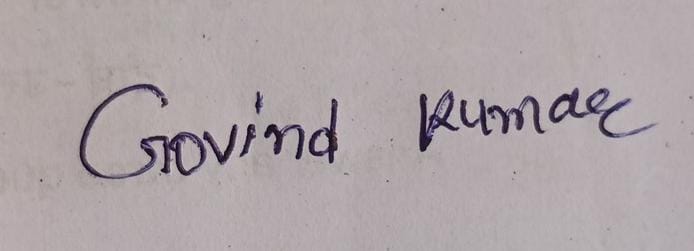 Govind Kumar